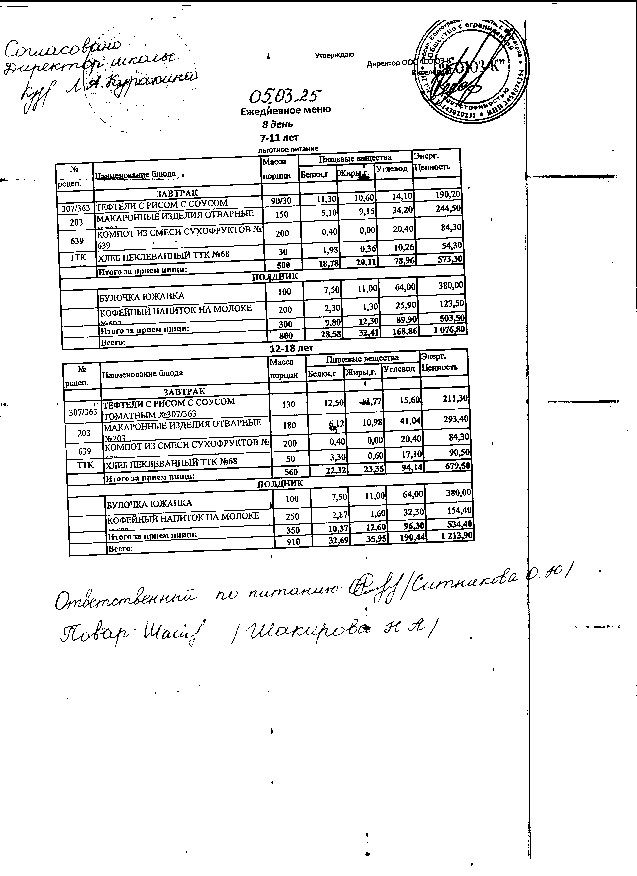 Согласовано
Директор школы
Л.А. Куракина
Утверждаю
Директор ООО "СОЮЗ-К"
05.03.25
Ежедневное меню
8 день
7-11 лет
льготное питание
№ рецеп. Наименование блюда Масса порции Пищевые вещества Энерг. Ценность
Белки,г Жиры,г Углевод
ЗАВТРАК
307/363 ТЕФТЕЛИ С РИСОМ С СОУСОМ 90/30 11,30 10,60 14,10 190,20
203 МАКАРОННЫЕ ИЗДЕЛИЯ ОТВАРНЫЕ 150 5,10 9,15 34,20 244,50
639 КОМПОТ ИЗ СМЕСИ СУХОФРУКТОВ № 639 200 0,40 0,00 20,40 84,30
ТТК ХЛЕБ ПЕКЛЕВАННЫЙ ТТК №68 30 1,98 0,36 10,26 54,30
Итого за прием пищи: 500 18,78 20,11 78,96 573,30
ПОЛДНИК
БУЛОЧКА ЮЖАНКА 100 7,50 11,00 64,00 380,00
КОФЕЙНЫЙ НАПИТОК НА МОЛОКЕ 200 2,30 1,30 25,90 123,50
Итого за прием пищи: 300 9,80 12,30 89,90 503,50
Всего: 800 28,58 32,41 168,86 1 076,80
12-18 лет
№ рецеп. Наименование блюда Масса порции Пищевые вещества Энерг. Ценность
Белки,г Жиры,г Углевод
ЗАВТРАК
307/363 ТЕФТЕЛИ С РИСОМ С СОУСОМ ТОМАТНЫМ №307/363 130 12,50 11,77 15,60 211,30
203 МАКАРОННЫЕ ИЗДЕЛИЯ ОТВАРНЫЕ №203 180 6,12 10,98 41,04 293,40
639 КОМПОТ ИЗ СМЕСИ СУХОФРУКТОВ № 200 0,40 0,00 20,40 84,30
ТТК ХЛЕБ ПЕКЛЕВАННЫЙ ТТК №68 50 3,30 0,60 17,10 90,50
Итого за прием пищи: 560 22,32 23,35 94,14 679,50
ПОЛДНИК
БУЛОЧКА ЮЖАНКА 100 7,50 11,00 64,00 380,00
КОФЕЙНЫЙ НАПИТОК НА МОЛОКЕ 250 2,87 1,60 32,30 154,40
Итого за прием пищи: 350 10,37 12,60 96,30 534,40
Всего: 910 32,69 35,95 190,44 1 213,90
Ответственный по питанию /Ситникова О.Ю/
Повар /Шакирова Н А/